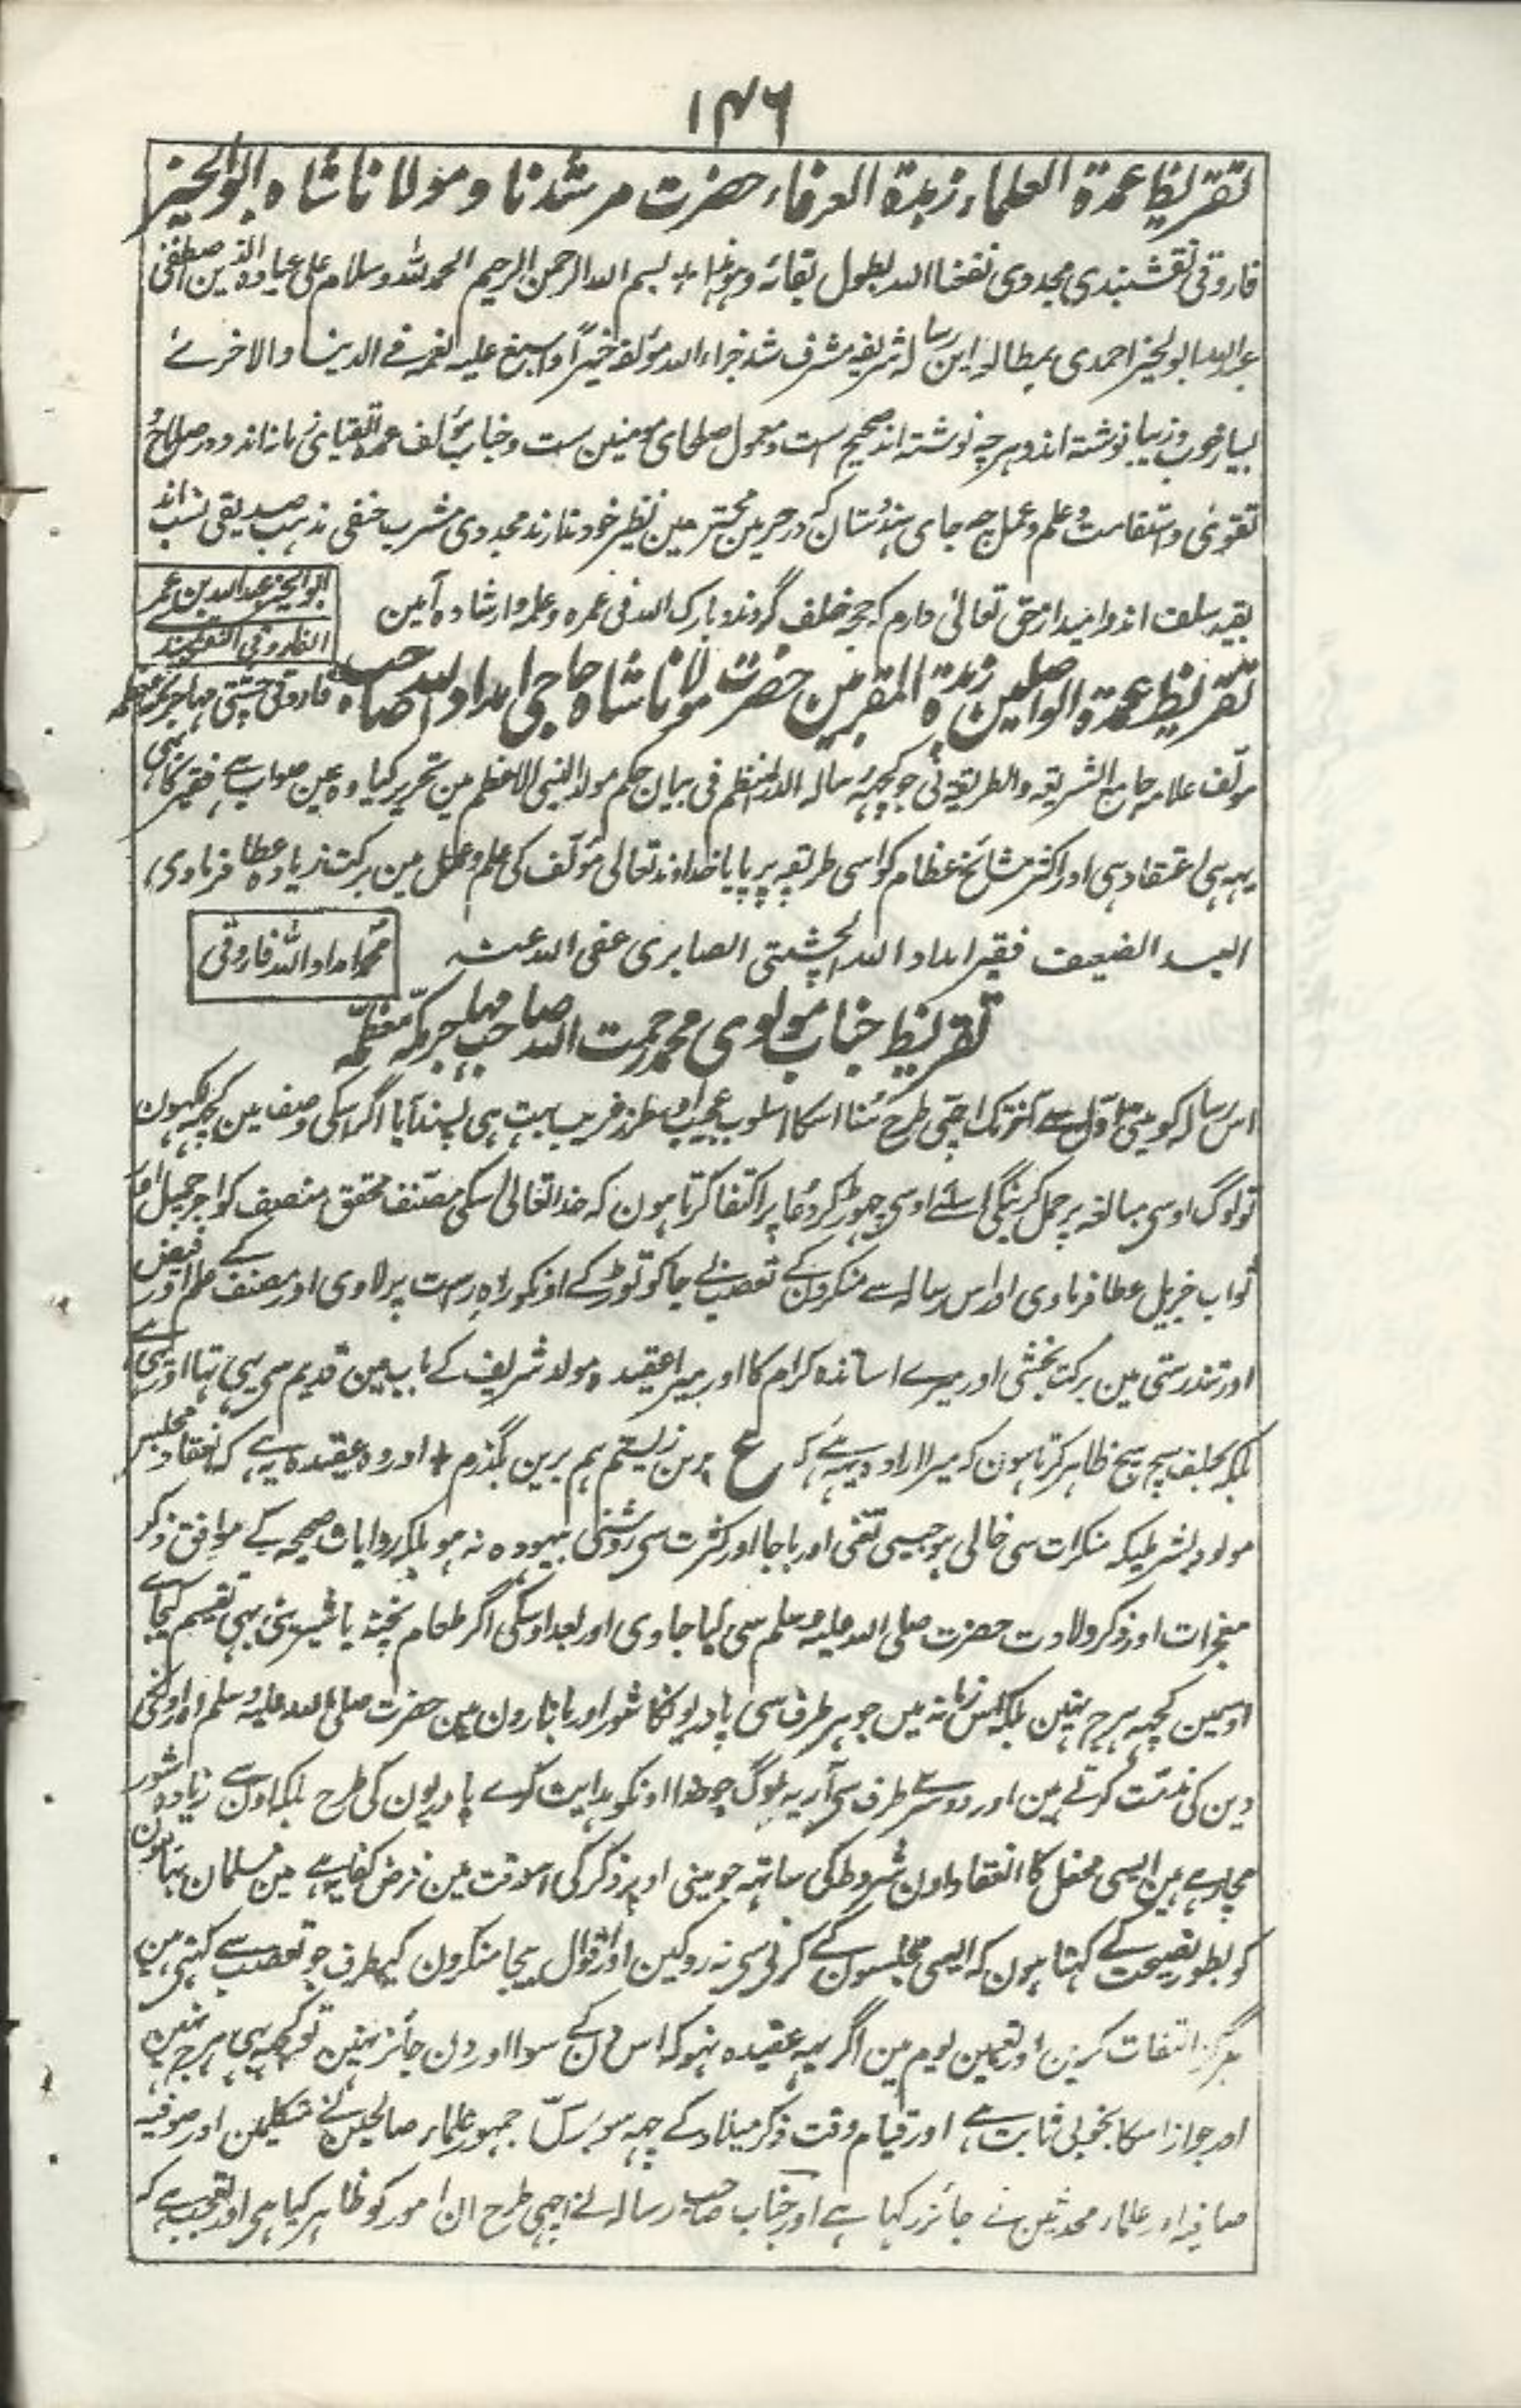 ۱۴۶
تقریظ عمدة العلماء زبدة العرفاء حضرت مرشدنا و مولانا شاہ ابو الخیر
فاروقی نقشبندی مجددی نفعنا اللہ بطول بقائہ و فیوضہ بسم اللہ الرحمن الرحیم الحمد للہ و سلام علی عبادہ الذین اصطفی
عبد اللہ ابو الخیر احمدی بمطالعہ این رسالہ شریفہ مشرف شد جزاہ اللہ مؤلفہ خیراً و اسبغ علیہ نعمہ فے الدینا والاخرے
بسیار خوب و زیبا نوشتہ اند و ہر چہ نوشتہ اند صحیح ست و معمول صلحای مومنین ست و جناب مؤلف عمدہ اتقیای زمانہ اند و در صلاح و
تقوی و استقامت و علم و عمل چہ جای ہندوستان کہ در حرمین محترمین نظیر خود ندارند مجددی مشرب حنفی مذہب صدیقی نسب اند
بقیہ سلف اند و امید از حق تعالی دارم کہ حجہ خلف گردند و بارک اللہ فی عمرہ و علمہ و ارشادہ آمین
ابو الخیر عبد اللہ بن عمر
الفاروقی النقشبند
تقریظ عمدة الواصلین زبدة المقربین حضرت مولانا شاہ حاجی امداد اللہ صاحب فاروقی چشتی مہاجر مکہ معظمہ
مولف علامہ جامع الشریعہ والطریقہ نی جو کچھ رسالہ الدر المنظم فی بیان حکم مولد النبی الاعظم مین تحریر کیا وہ عین صواب ہے فقیر کا بھی
یہہ ہی اعتقاد ہی اور اکثر مشائخ عظام کو اسی طریقہ پر پایا خداوند تعالی مؤلف کی علم و عمل مین برکت زیادہ عطا فرماوی
العبد الضعیف فقیر امداد اللہ الچشتی الصابری عفی اللہ عنہ
محمد امداد اللہ فاروقی
تقریظ جناب مولوی محمد رحمت اللہ صاحب مہاجر مکہ معظمہ
اس رسالہ کو مینی اول سے آخر تک اچھی طرح سُنا اسکا اسلوب عجیب اور طرز غریب بہت ہی پسند آیا اگر اسکی وصف مین کچہہ لکھون
تو لوگ اوسی مبالغہ پر حمل کرینگی اسلئے اوسی چھوڑ کر دعا پر اکتفا کرتا ہون کہ خدا تعالی اسکی مصنف محقق منصف کو اجر جمیل اور
ثواب جزیل عطا فرماوی اور اس رسالہ سے منکرون کے تعصب بے جا کو توڑ کے اونکو راہ راست پر لاوی اور مصنف کے علم اور فیض
اور تندرستی مین برکت بخشی اور میرے اساتذہ کرام کا اور میرا عقیدہ مولد شریف کے باب مین قدیم سی یہی تہا اور یہی ہے
بلکہ بحلف سچ سچ ظاہر کرتا ہون کہ میرا ارادہ یہہ ہے کہ ع برین زیستم ہم برین بگذرم + اور وہ عقیدہ یہ ہے کہ انعقاد مجلس
مولود بشرطیکہ منکرات سی خالی ہو جیسی تغنی اور باجا اور کثرت سی روشنی بیہودہ نہ ہو بلکہ روایات صحیحہ کے موافق ذکر
معجزات اور ذکر ولادت حضرت صلی اللہ علیہ وسلم سی کیا جاوی اور بعد اوسکی اگر طعام پختہ یا شیرینی بہی تقسیم کیجاے
اوسمین کچہہ ہرج نہین بلکہ اس زمانہ مین جو ہر طرف سی پادریونکا شور اور بازارون مین حضرت صلی اللہ علیہ وسلم اور اونکی
دین کی مذمت کرتے ہین اور دوسرے طرف سی آریہ لوگ جو خدا اونکو ہدایت کرے پادریون کی طرح بلکہ اون سے زیادہ شور
مچا رہے ہین ایسی محفل کا انعقاد اون شروط کی ساتہہ جو مینی اوپر ذکر کی اسوقت مین فرض کفایہ ہے مین مسلمان بہائیون
کو بطور نصیحت کے کہتا ہون کہ ایسی مجلسون کے کرنی سی نہ روکین اور اقوال بیجا منکرون کیطرف جو تعصب سے کہتی ہین
ہرگز التفات نکرین اور تعیین یوم مین اگر یہہ عقیدہ نہو کہ اس دن کے سوا اور دن جائز نہین تو کچہہ بہی ہرج نہین
اور جواز اسکا بخوبی ثابت ہے اور قیام وقت ذکر میلاد کے چہہ سو برس سے جمہور علماء صالحین نے متکلمین اور صوفیہ
صافیہ اور علماء محدثین نے جائز رکہا ہے اور جناب صاحب رسالہ نے اچھی طرح ان امور کو ظاہر کیا ہی اور تعجب ہے کہ